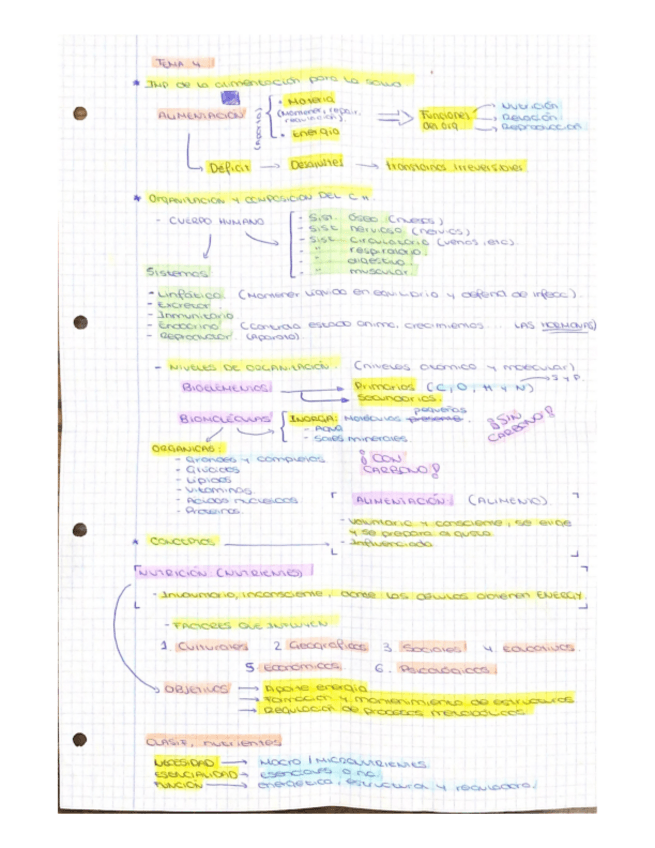 TEMA 4
* IMP de la alimentación para la salud
ALIMENTACIÓN (Aporta) • Materia (Mantener, repair, ⇒ Funciones del org → Nutrición
→ Relación
→ Reproducción
• energía
Déficit → Desajustes → trastornos irreversibles
* ORGANIZACION Y COMPOSICION DEL C.H.
- CUERPO HUMANO
- Sist. óseo (huesos)
- Sist nervioso (nervios)
- Sist circulatorio (venas, etc).
- " respiratorio.
- " digestivo
- " muscular
Sistemas
- Linfático. (Mantener líquido en equilibrio y defend de infecc).
- Excretor.
- Inmunitario
- Endocrino (Controla estado ánimo, crecimientos... LAS HORMONAS)
- Reproductor (Aparato).
- NIVELES DE ORGANIZACIÓN. (niveles atómico y molecular)
BIOELEMENTOS → Primarios (C, O, H y N) → S y P.
→ Secundarios.
BIOMOLÉCULAS INORGA: Moléculas pequeñas. ¡SIN CARBONO!
- Agua
- Sales minerales
ORGANICAS: ¡CON CARBONO!
- Grandes y complejas
- Glúcidos
- Lípidos
- Vitaminas
- Ácidos nucleicos
- Proteínas.
ALIMENTACIÓN (ALIMENTO)
- Voluntaria y consciente, se elige
y se prepara al gusto.
- Influenciada
* CONCEPTOS
NUTRICIÓN (NUTRIENTES)
- Involuntario, inconsciente, donde las células obtienen ENERGY
- FACTORES QUE INFLUYEN
1. Culturales 2 Geográficos 3 Sociales 4. Educativos
5 Económicos. 6. Psicológicos
OBJETIVOS → Aporte energía
→ Formación y mantenimiento de estructuras
→ Regulación de procesos metabólicos
CLASIF, nutrientes
NECESIDAD → MACRO / MICRONUTRIENTES.
ESENCIALIDAD → esenciales o no
FUNCIÓN → energética, estructural y reguladora.